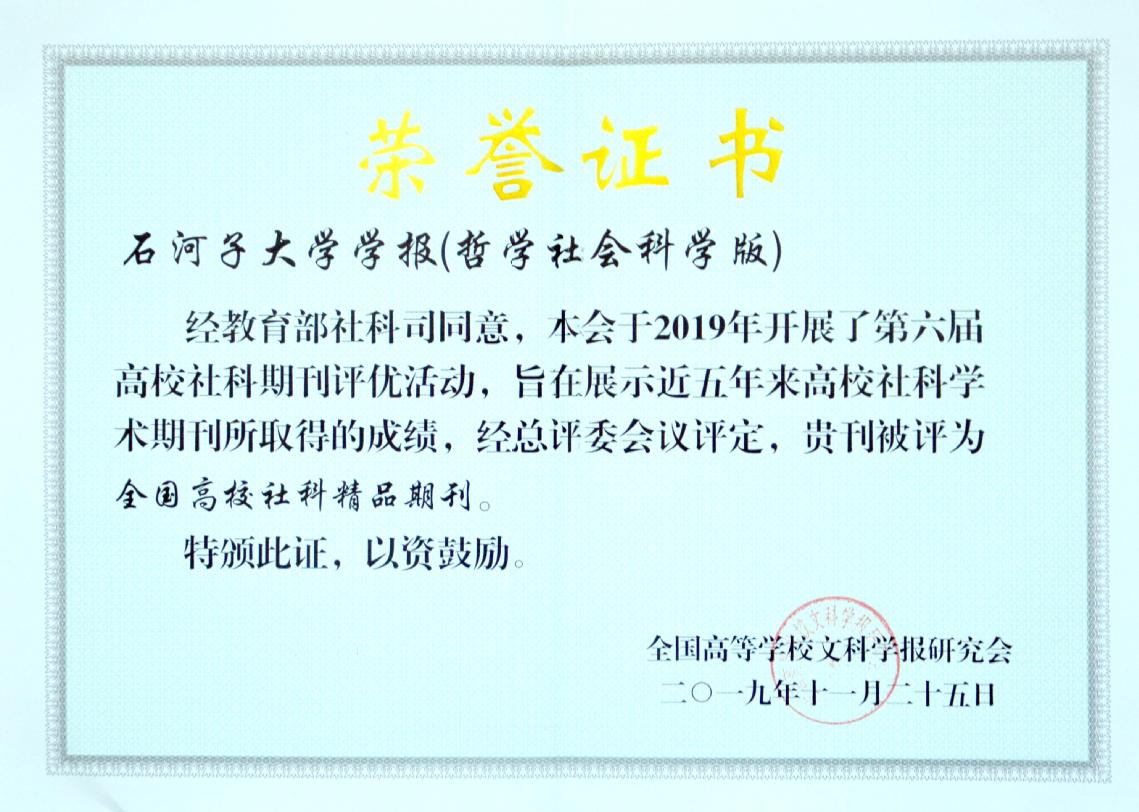 荣誉证书
石河子大学学报(哲学社会科学版)
经教育部社科司同意，本会于2019年开展了第六届
高校社科期刊评优活动，旨在展示近五年来高校社科学
术期刊所取得的成绩，经总评委会议评定，贵刊被评为
全国高校社科精品期刊。
特颁此证，以资鼓励。
全国高等学校文科学报研究会
二〇一九年十一月二十五日